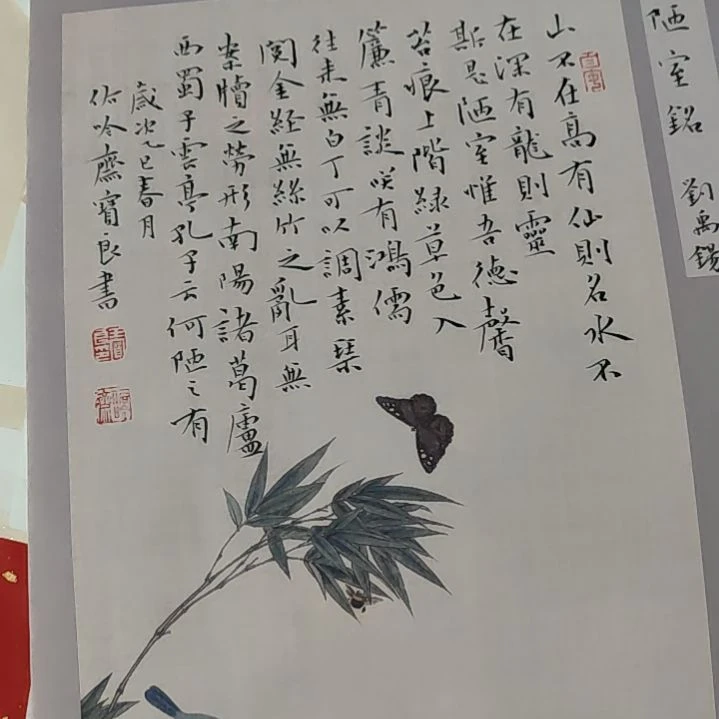 陋室銘 劉禹錫
山不在高有仙則名水不
在深有龍則靈
斯是陋室惟吾德馨
苔痕上階緑草色入
簾青談咲有鴻儒
往来無白丁可以調素琴
閲金経無絲竹之亂耳無
案牘之勞形南陽諸葛廬
西蜀子雲亭孔子云何陋之有
歲次乙巳春月
吟齋寶良書